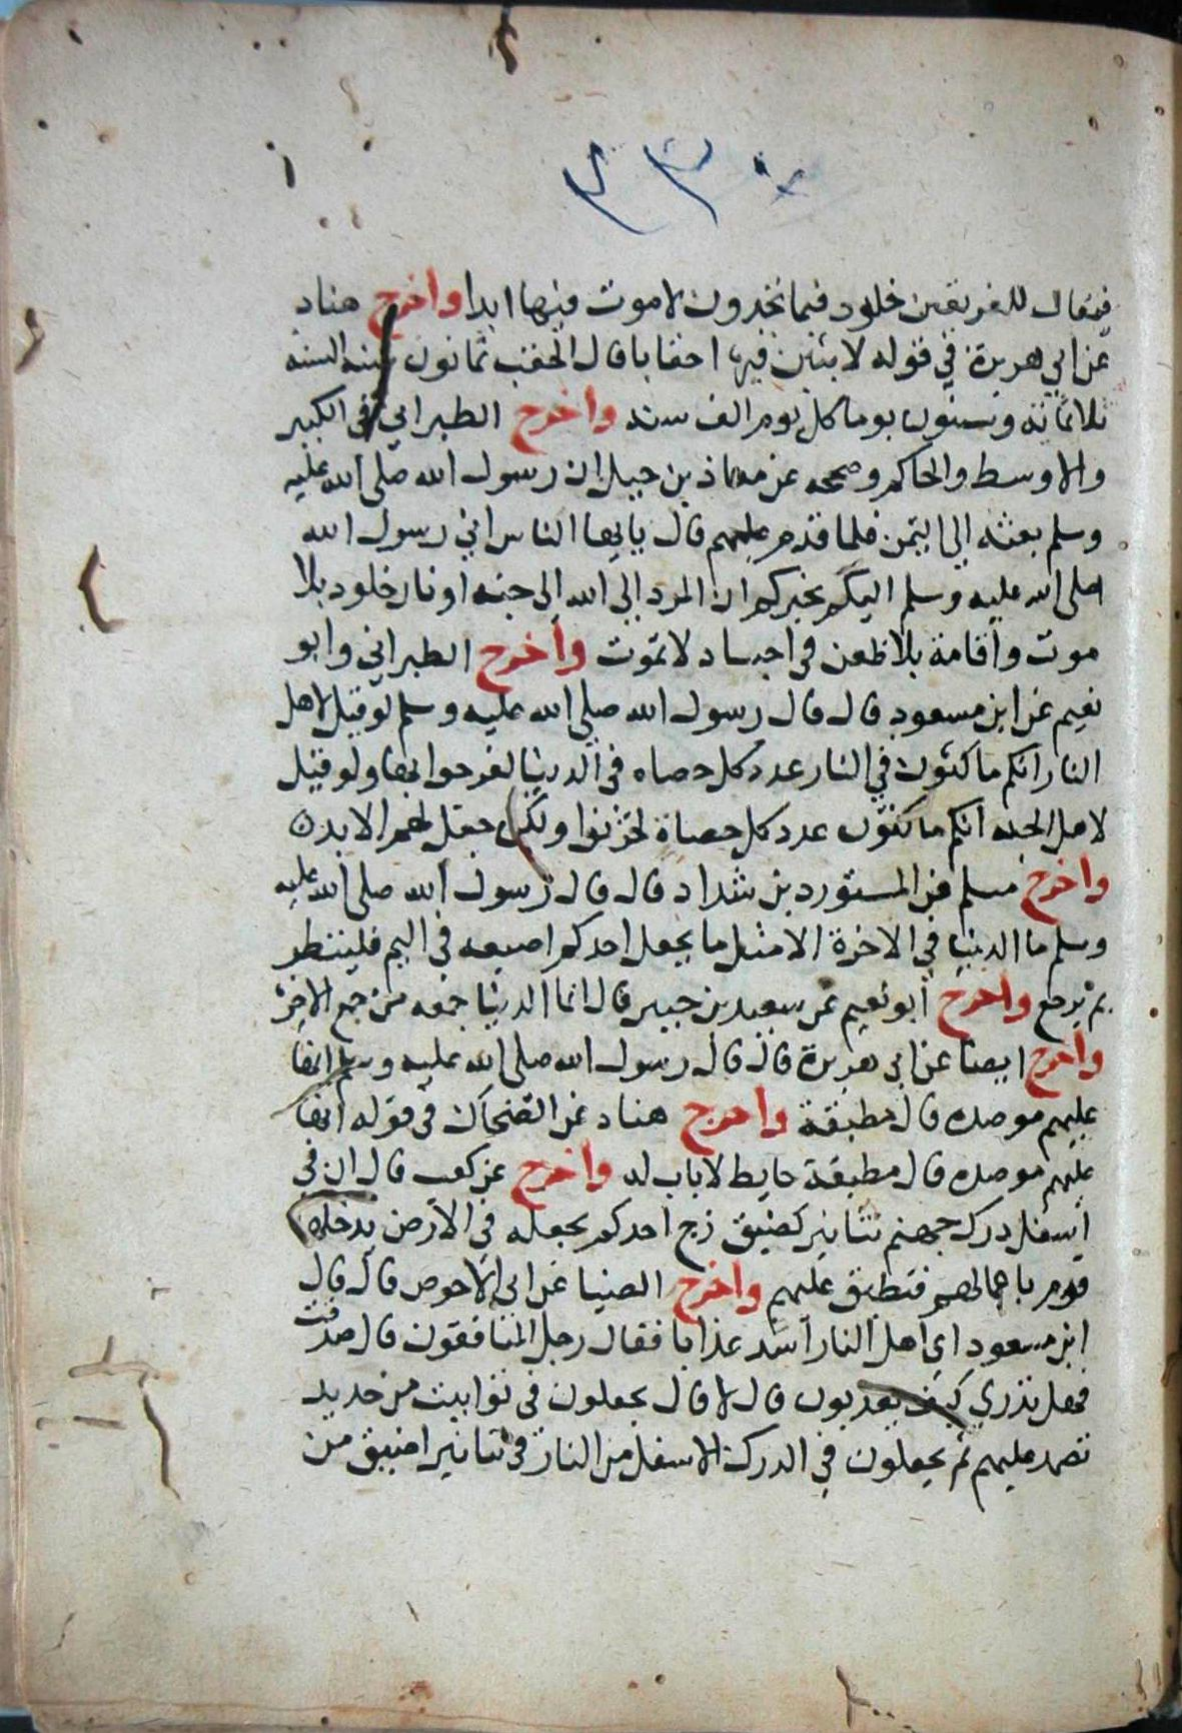 ٢٣٢
فيقال للفريقين خلود فيما تجدون لا موت فيها ابدا واخرج هناد
عن ابي هريرة في قوله لابثين فيها احقابا قال الحقب ثمانون سنه السنه
ثلاثمائة وستون يوما كل يوم الف سنه واخرج الطبراني في الكبير
والاوسط والحاكم وصححه عن معاذ بن جبل ان رسول الله صلى الله عليه
وسلم بعثه الى اليمن فلما قدم عليهم قال يايها الناس اني رسول الله
صلى الله عليه وسلم اليكم يخبركم ان المرد الى الله الى جنه او نار خلود بلا
موت واقامة بلا ظعن في اجساد لا تموت واخرج الطبراني وابو
نعيم عن ابن مسعود قال قال رسول الله صلى الله عليه وسلم لو قيل لاهل
النار انكم ماكثون في النار عدد كل حصاه في الدينا لفرحوا بها ولو قيل
لاهل الجنه انكم ماكثون عدد كل حصاة لحزنوا ولكن جعل لهم الابد ه
واخرج مسلم عن المستورد بن شداد قال قال رسول الله صلى الله عليه
وسلم ما الدينا في الاخرة الا مثل ما يجعل احدكم اصبعه في اليم فلينظر
بم يرجع واخرج ابو نعيم عن سعيد بن جبير قال انما الدينا جمعه من جمع الاخرة
واخرج ايضا عن ابى هريرة قال قال رسول الله صلى الله عليه وسلم انها
عليهم موصده قال مطبقة واخرج هناد عن الضحاك في قوله انها
عليهم موصده قال مطبقة حايط لا باب له واخرج عن كعب قال ان في
اسفل درك جهنم تنانير كضيق زج احدكم يجعله في الارض يدخله
قوم باعمالهم فتطبق عليهم واخرج الضيا عن ابى الاحوص قال قال
ابن مسعود اي اهل النار اشد عذابا فقال رجل المنافقون قال صدقت
فهل تدري كيف يعذبون قال لا قال يجعلون في توابيت من حديد
تصمد عليهم ثم يجعلون في الدرك الاسفل من النار في تنانير اضيق من